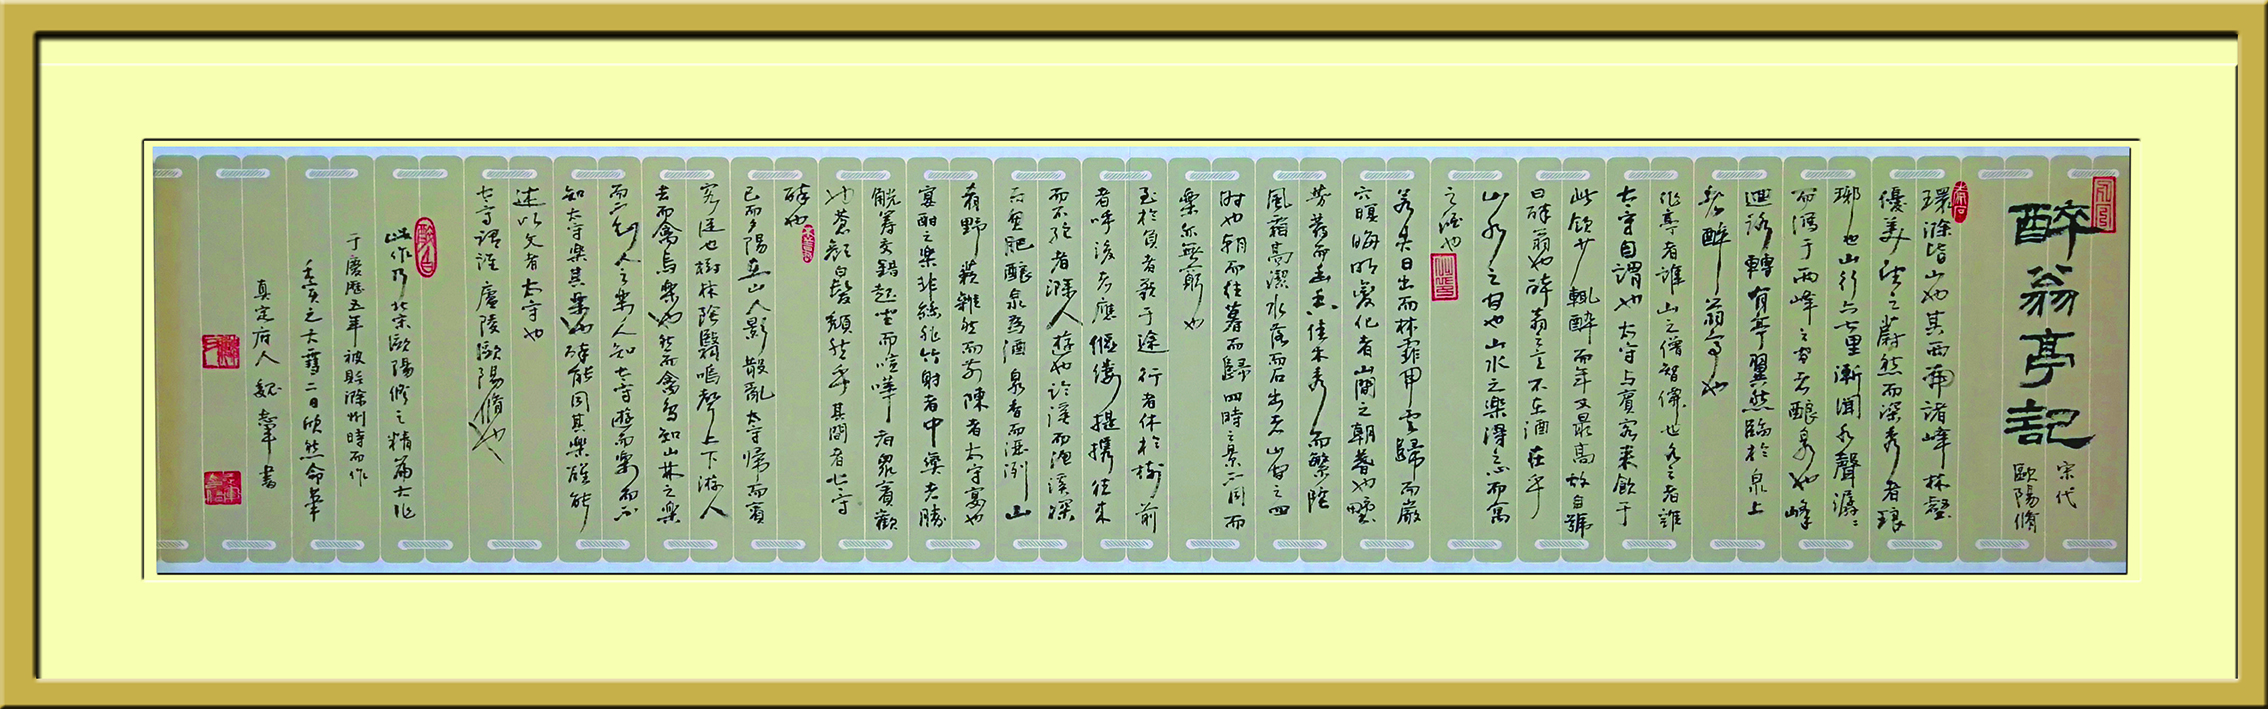 醉翁亭記
宋代
歐陽脩
環滁皆山也其西南諸峰林壑
優美望之蔚然而深秀者琅
琊也山行六七里漸聞水聲潺潺
而瀉于兩峰之間者釀泉也峰
迴路轉有亭翼然臨於泉上
者醉翁亭也
作亭者誰山之僧智僊也名之者誰
太守自謂也太守与賓客来飲于
此飲少輒醉而年又最高故自號
曰醉翁也醉翁之意不在酒在乎
山水之間也山水之樂得之心而寓
之酒也
若夫日出而林霏開雲歸而巖
穴暝晦明變化者山間之朝暮也野
芳發而幽香佳木秀而繁陰
風霜高潔水落而石出者山間之四
時也朝而往暮而歸四時之景不同而
樂亦無窮也
至於負者歌于途行者休於樹前
者呼後者應傴僂提攜往来
而不絶者滁人遊也臨溪而漁溪深
而魚肥釀泉為酒泉香而酒洌山
肴野蔌雜然而前陳者太守宴也
宴酣之樂非絲非竹射者中奕者勝
觥籌交錯起坐而諠嘩者眾賓歡
也蒼顏白髮頹然乎其間者太守
醉也
已而夕陽在山人影散亂太守歸而賓
客從也樹林陰翳鳴聲上下游人
去而禽鳥樂也然而禽鳥知山林之樂
而不知人之樂人知太守遊而樂而不
知太守樂其樂也醉能同其樂醒能
述以文者太守也
太守謂誰廬陵歐陽脩也
此作乃北宋歐陽脩之精篇大作
于慶歷五年被貶滁州時而作
二日欣然命筆
真定府人魏志軍書